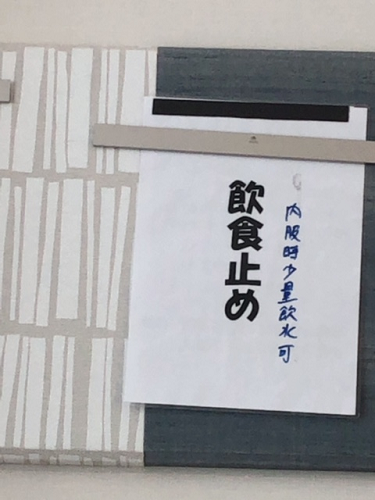 内服時少量飲水可
飲食止め